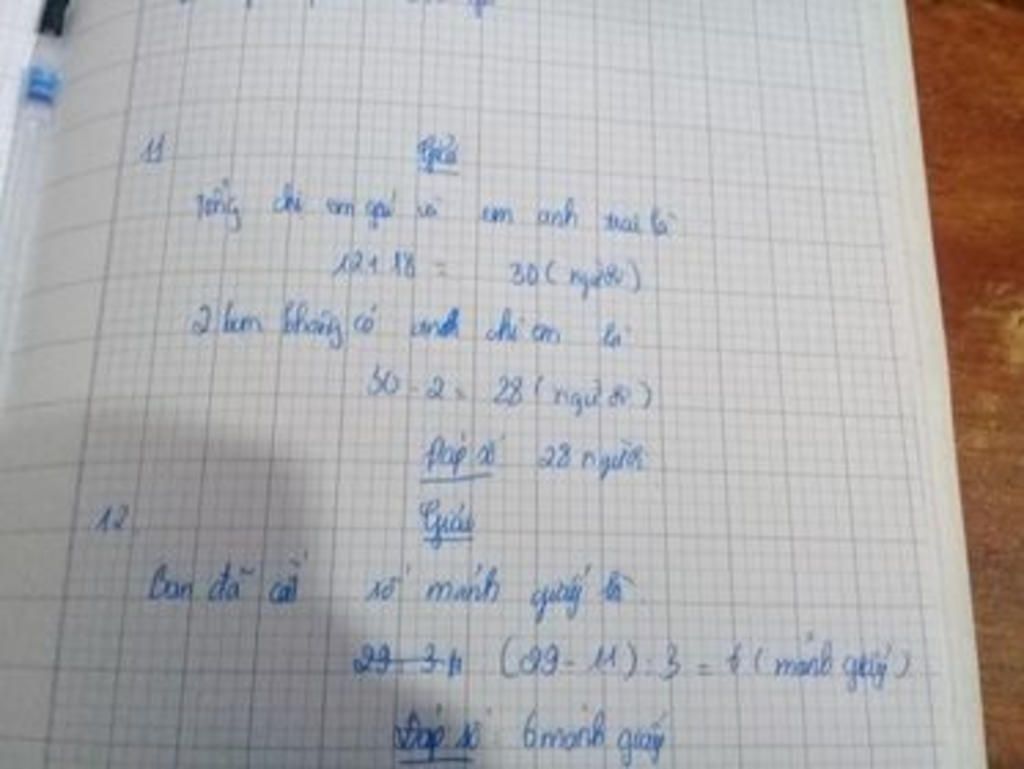 11 Giải
Tổng chị em gái và em anh trai là
12 + 18 = 30 (người)
2 bạn không có anh chị em là
30 - 2 = 28 (người)
Đáp số 28 người
12 Giải
Ban đã cắt số mảnh giấy là
29 - 3 (29 - 11) : 3 = 6 (mảnh giấy)
Đáp số 6 mảnh giấy